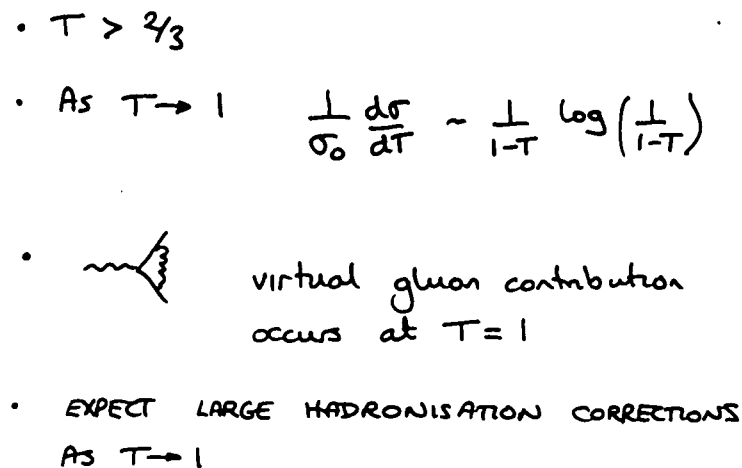 • T > 2/3
• As T → 1 1/σ₀ dσ/dT ~ 1/(1-T) log(1/(1-T))
• virtual gluon contribution
occurs at T = 1
• EXPECT LARGE HADRONISATION CORRECTIONS
AS T → 1